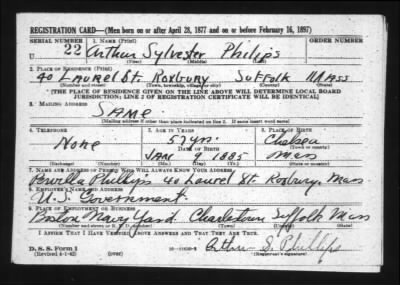 REGISTRATION CARD—(Men born on or after April 28, 1877 and on or before February 16, 1897)
SERIAL NUMBER 1. NAME (Print) ORDER NUMBER
U 22 Arthur Sylvester Philips
(First) (Middle) (Last)
2. PLACE OF RESIDENCE (Print)
40 Laurel St. Roxbury Suffolk Mass
(Number and street) (Town, township, village, or city) (County) (State)
[THE PLACE OF RESIDENCE GIVEN ON THE LINE ABOVE WILL DETERMINE LOCAL BOARD
JURISDICTION; LINE 2 OF REGISTRATION CERTIFICATE WILL BE IDENTICAL]
3. MAILING ADDRESS
SAME
[Mailing address if other than place indicated on line 2. If same insert word same]
4. TELEPHONE 5. AGE IN YEARS 6. PLACE OF BIRTH
None 57 yrs. Chelsea
DATE OF BIRTH (Town or county)
JAN 1885 Mass
(Exchange) (Number) (Mo.) (Day) (Yr.) (State or country)
7. NAME AND ADDRESS OF PERSON WHO WILL ALWAYS KNOW YOUR ADDRESS
Phillips 40 Laurel St. Roxbury, Mass
8. EMPLOYER'S NAME AND ADDRESS
U.S. Government.
9. PLACE OF EMPLOYMENT OR BUSINESS
Boston Navy Yard Charlestown Suffolk Mass
(Number and street or R. F. D. number) (Town) (County) (State)
I AFFIRM THAT I HAVE VERIFIED ABOVE ANSWERS AND THAT THEY ARE TRUE.
Arthur S. Phillips
D. S. S. Form 1
(Revised 4-1-42) (over) (Registrant's signature)